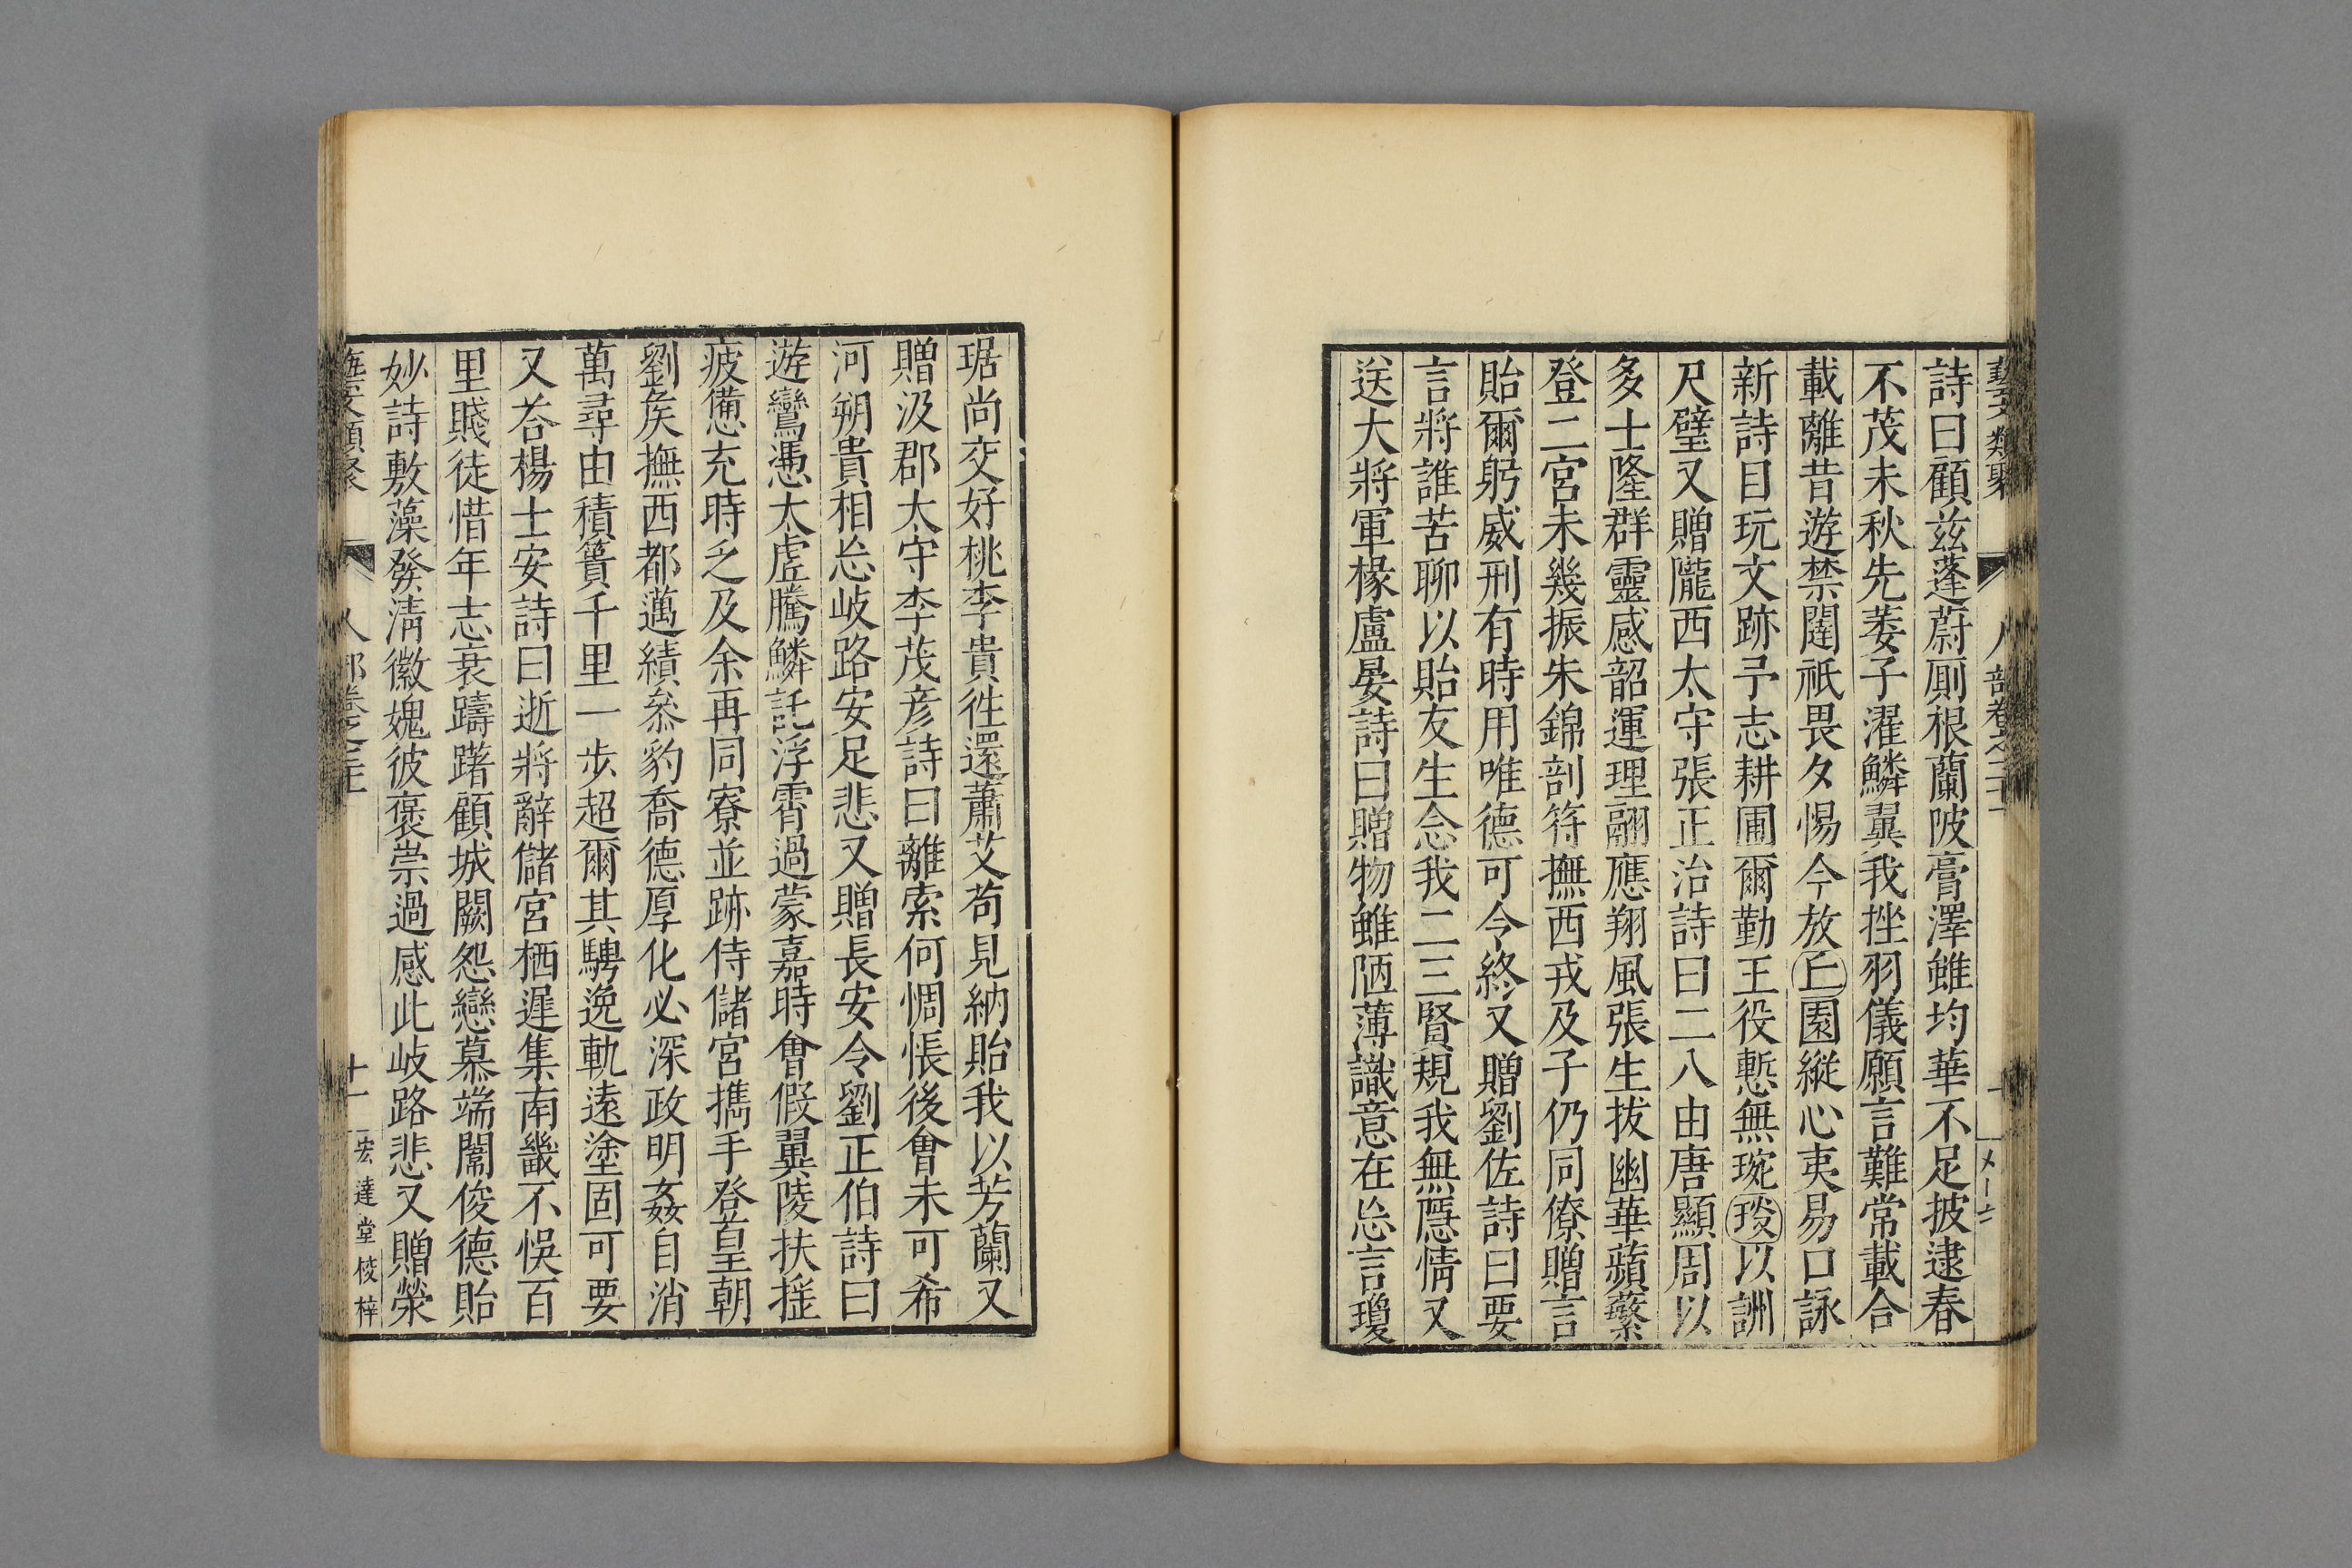 藝文類聚 人部卷之三十一
詩曰顧茲蓬蔚厠根蘭陂膏澤雖均華不足披逮春
不茂未秋先萎子濯鱗翼我挫羽儀願言難常載合
載離昔遊禁闥祇畏夕惕今放𠀉園縱心夷易口詠
新詩目玩文跡予志耕圃爾勤王役慙無琬琰以詶
尺璧又贈隴西太守張正治詩曰二八由唐顯周以
多士隆群靈感韶運理翮應翔風張生拔幽華蘋蘩
登二宮未幾振朱錦剖符撫西戎及子仍同僚贈言
貽爾躬威刑有時用唯德可令終又贈劉佐詩曰要
言將誰苦聊以貽友生念我二三賢規我無隱情又
送大將軍椽盧晏詩曰贈物雖陋薄識意在忘言瓊
琚尚交好桃李貴徃還蕭艾苟見納貽我以芳蘭又
贈汲郡大守李茂彥詩曰離索何惆悵後會未可希
河朔貴相忘岐路安足悲又贈長安令劉正伯詩曰
遊鸞憑太虛騰鱗託浮霄過蒙嘉時會假翼陵扶搖
疲憊充時乏及余再同寮並跡侍儲宮攜手登皇朝
劉矦撫西都邁績叅豹喬德厚化必深政明姦自消
萬尋由積簣千里一步超爾其騁逸軌遠塗固可要
又荅楊士安詩曰逝將辭儲宮栖遲集南畿不悞百
里賤徒惜年志衰躊躇顧城闕怨戀慕端闈俊德貽
妙詩敷藻發清徽媿彼褒崇過感此岐路悲又贈滎
藝文類聚 人部卷之三十一 十一 宏達堂校梓